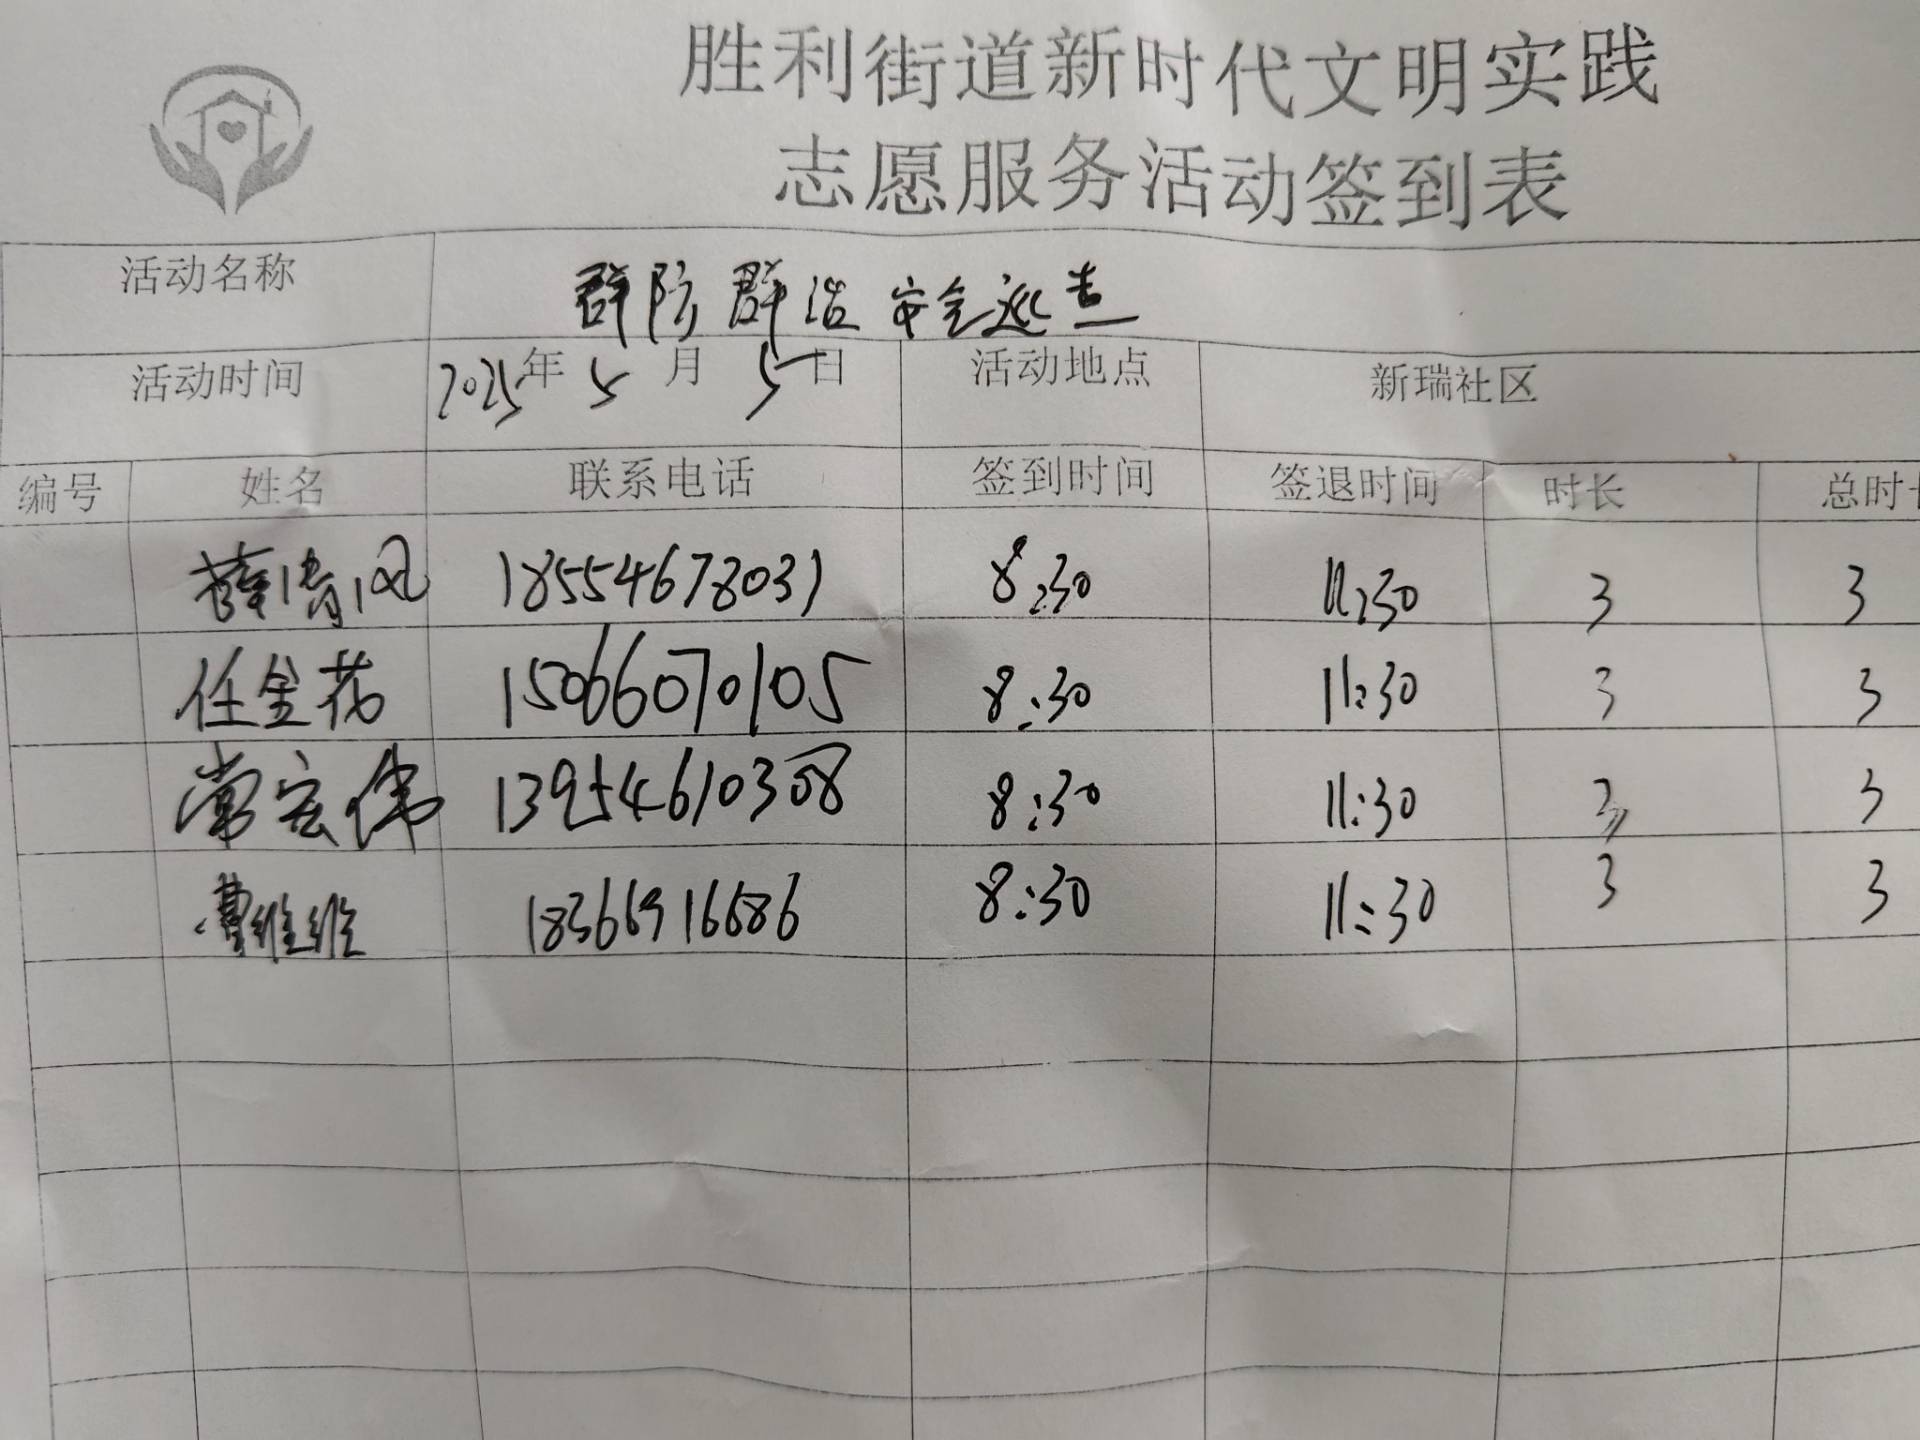 胜利街道新时代文明实践
志愿服务活动签到表
活动名称 群防群治 安全巡查
活动时间 2025年5月5日 活动地点 新瑞社区
编号 姓名 联系电话 签到时间 签退时间 时长 总时长
薛清风 18554678031 8:30 11:30 3 3
任金花 15066070105 8:30 11:30 3 3
常宏伟 13954610308 8:30 11:30 3 3
曹维维 18366916686 8:30 11:30 3 3